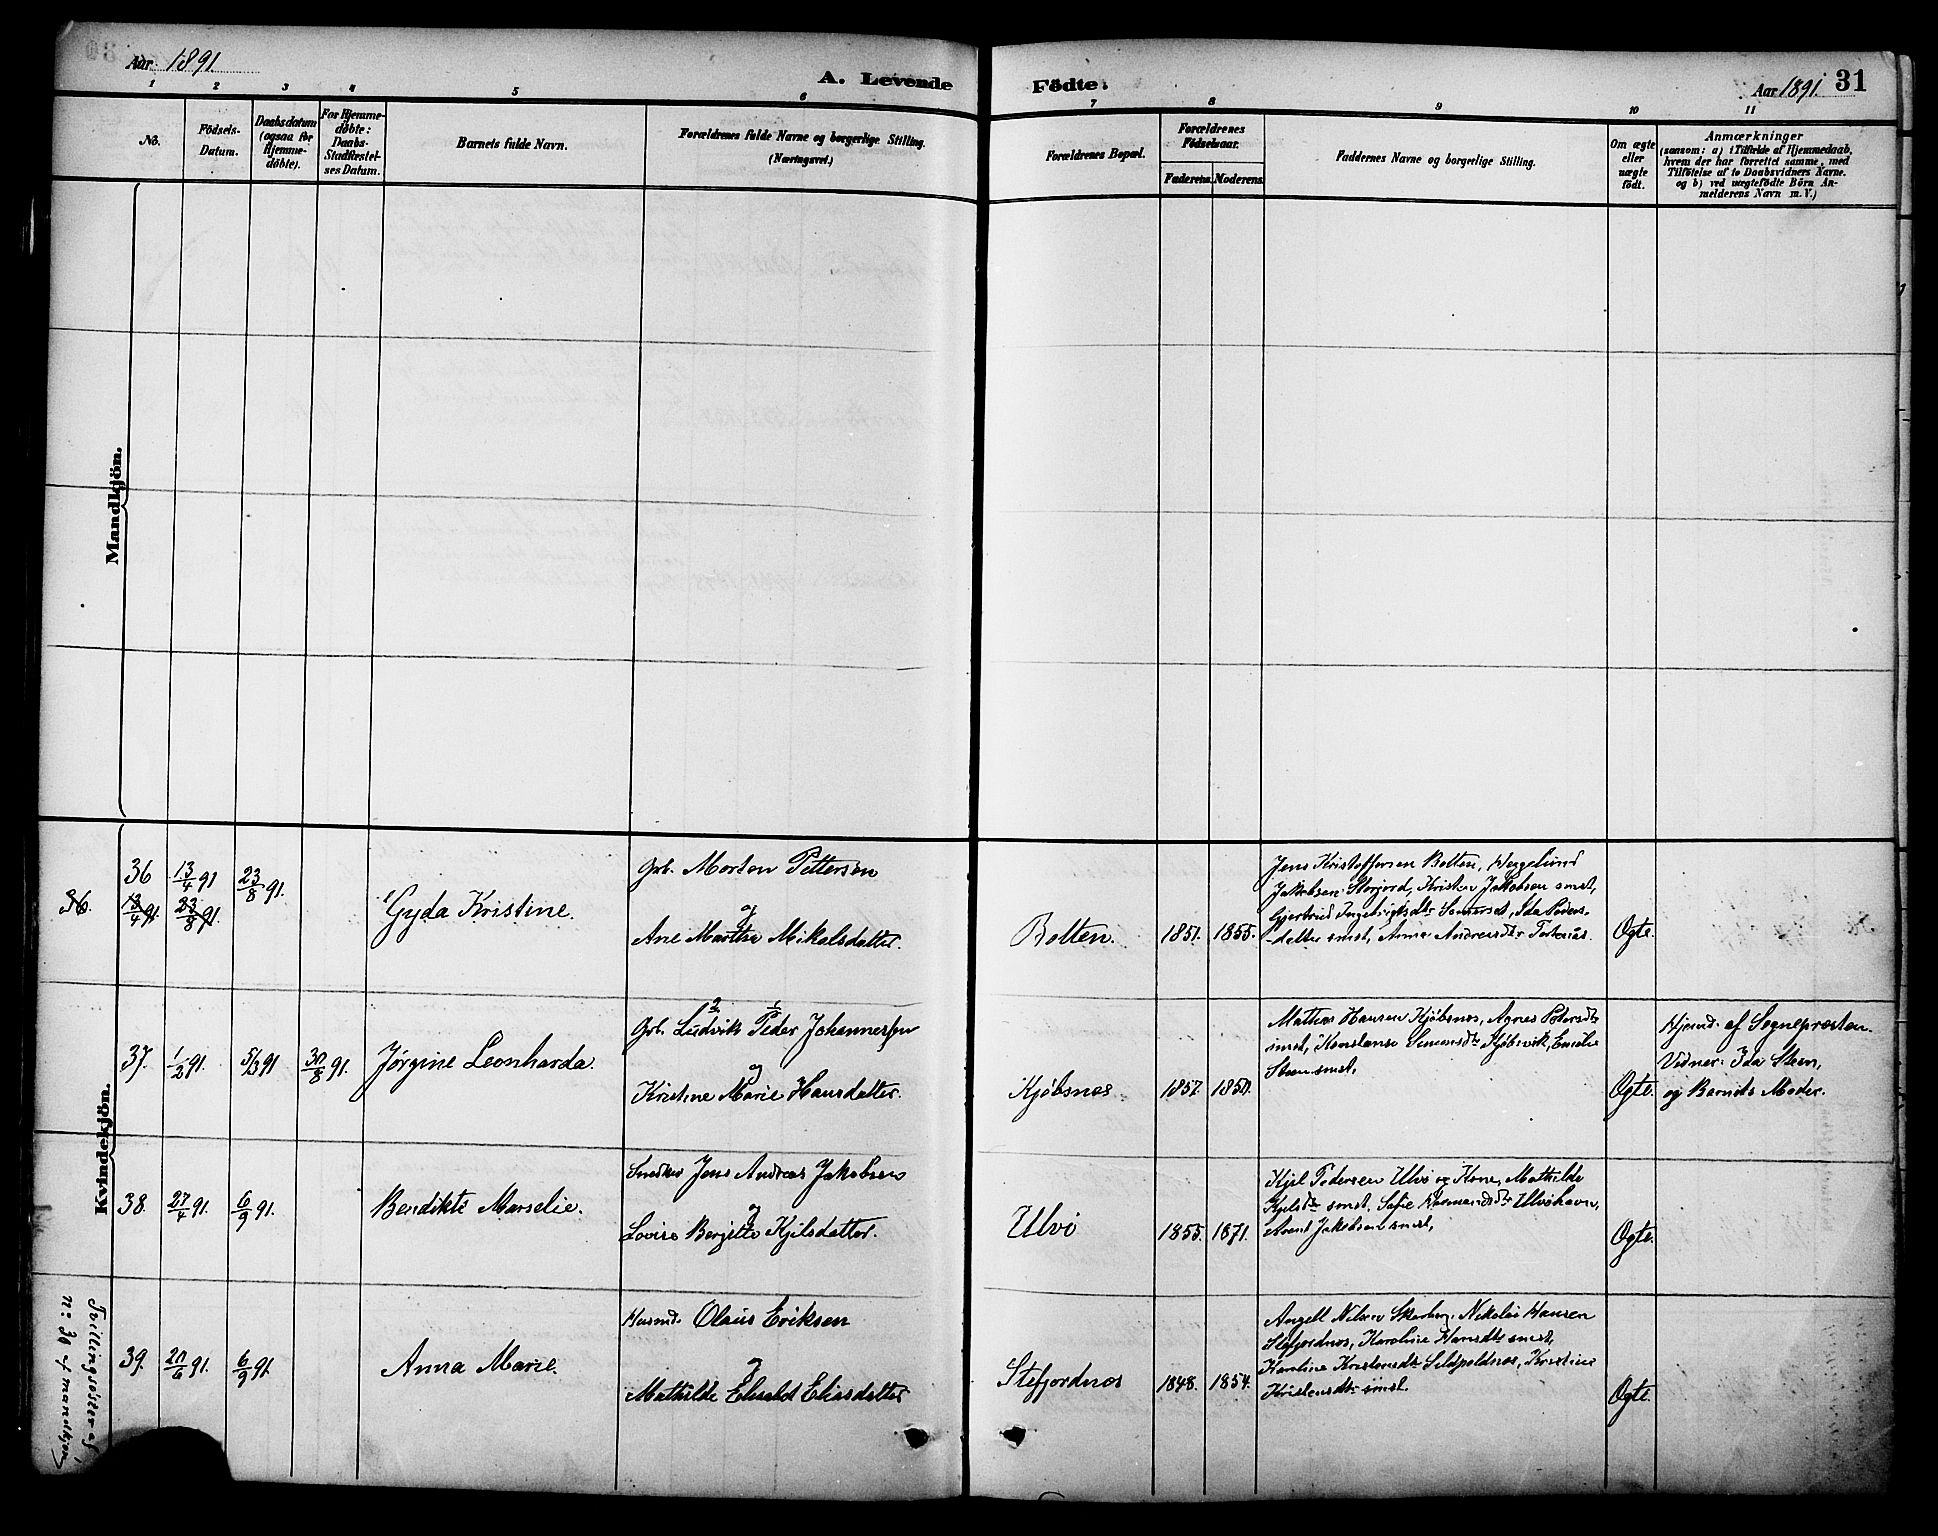 Aar 1891.
A. Levende
Födte.
Aar 1891. 31
1 2 3 4 5 6 7 8 9 10 11
No.
Födsels-
Datum.
Daabsdatum
(ogsaa for
Hjemme-
døbte).
For Hjemme-
døbte:
Daabs-
Stadfæstel-
ses Datum.
Barnets fulde Navn.
Forældrenes fulde Navne og borgerlige Stilling.
(Næringsvei.)
Forældrenes Bopæl.
Forældrenes
Födselsaar.
Faderens.
Moderens.
Faddernes Navne og borgerlige Stilling.
Om ægte
eller
uægte
født.
Anmærkninger
(saasom: a) i Tilfælde af Hjemmedaab,
hvem der har forrettet samme, med
Tilføielse af to Daabsvidners Navne.
og b) ved uægtefödte Börn An-
melderens Navn m. V.)
Mandkjön.
Kvindekjön.
36.
36
13/4 91
23/8 91.
13/4 91.
23/8 91.
Gyda Kristine.
Grb. Morten Pettersen
og
Ane Martha Mikalsdatter.
Botten.
1851.
1855.
Jens Kristoffersen Botten, Heggelund
Jakobsen Storjord, Kristen Jakobsen smst,
Gjertrud Ingebrigtsdtr Sommerset, Ida Peders-
-datter smst, Anna Andreasdtr
Ægte.
37.
1/2 91.
5/3 91
30/8 91.
Jørgine Leonharda.
2 1
Grb. Ludvik Peder Johannessen
og
Kristine Marie Hansdatter.
Kjøbsnes
1857.
1850.
Mathias Hansen Kjøbsnes, Agnes Pedersdtr
smst, Konstanse Simonsdtr Kjøbsvik, Emilie
Steen smst,
Ægte.
Hjemd. af Sogneprosten.
Vidner: Ida Steen,
og Barnets Moder.
38.
27/4 91.
6/9 91.
Bendikte Marselie.
Snedker Jens Andreas Jakobsen
og
Lovise Bergitte Kjelsdatter.
Ulvö
1855.
1871.
Kjel Pedersen Ulvö og Kone, Mathilde
Kjelsdtr smst, Sofie Ulvöhavn,
Arent Jakobsen smst,
Ægte.
39.
6/9 91.
Anna Marie.
Husmd. Olaus Eriksen
og
Mathilde Elisabet Eliasdatter
Stefjordnes
1848.
1854.
Angell Nilsen Skarberg, Nikolai Hansen
Stefjordnes, Karoline Hansdtr smst,
Karoline Kristensdtr Kristine
Kristensdtr smst.
Ægte.
Tvillingsøster af
n: 30 af mandkjøn